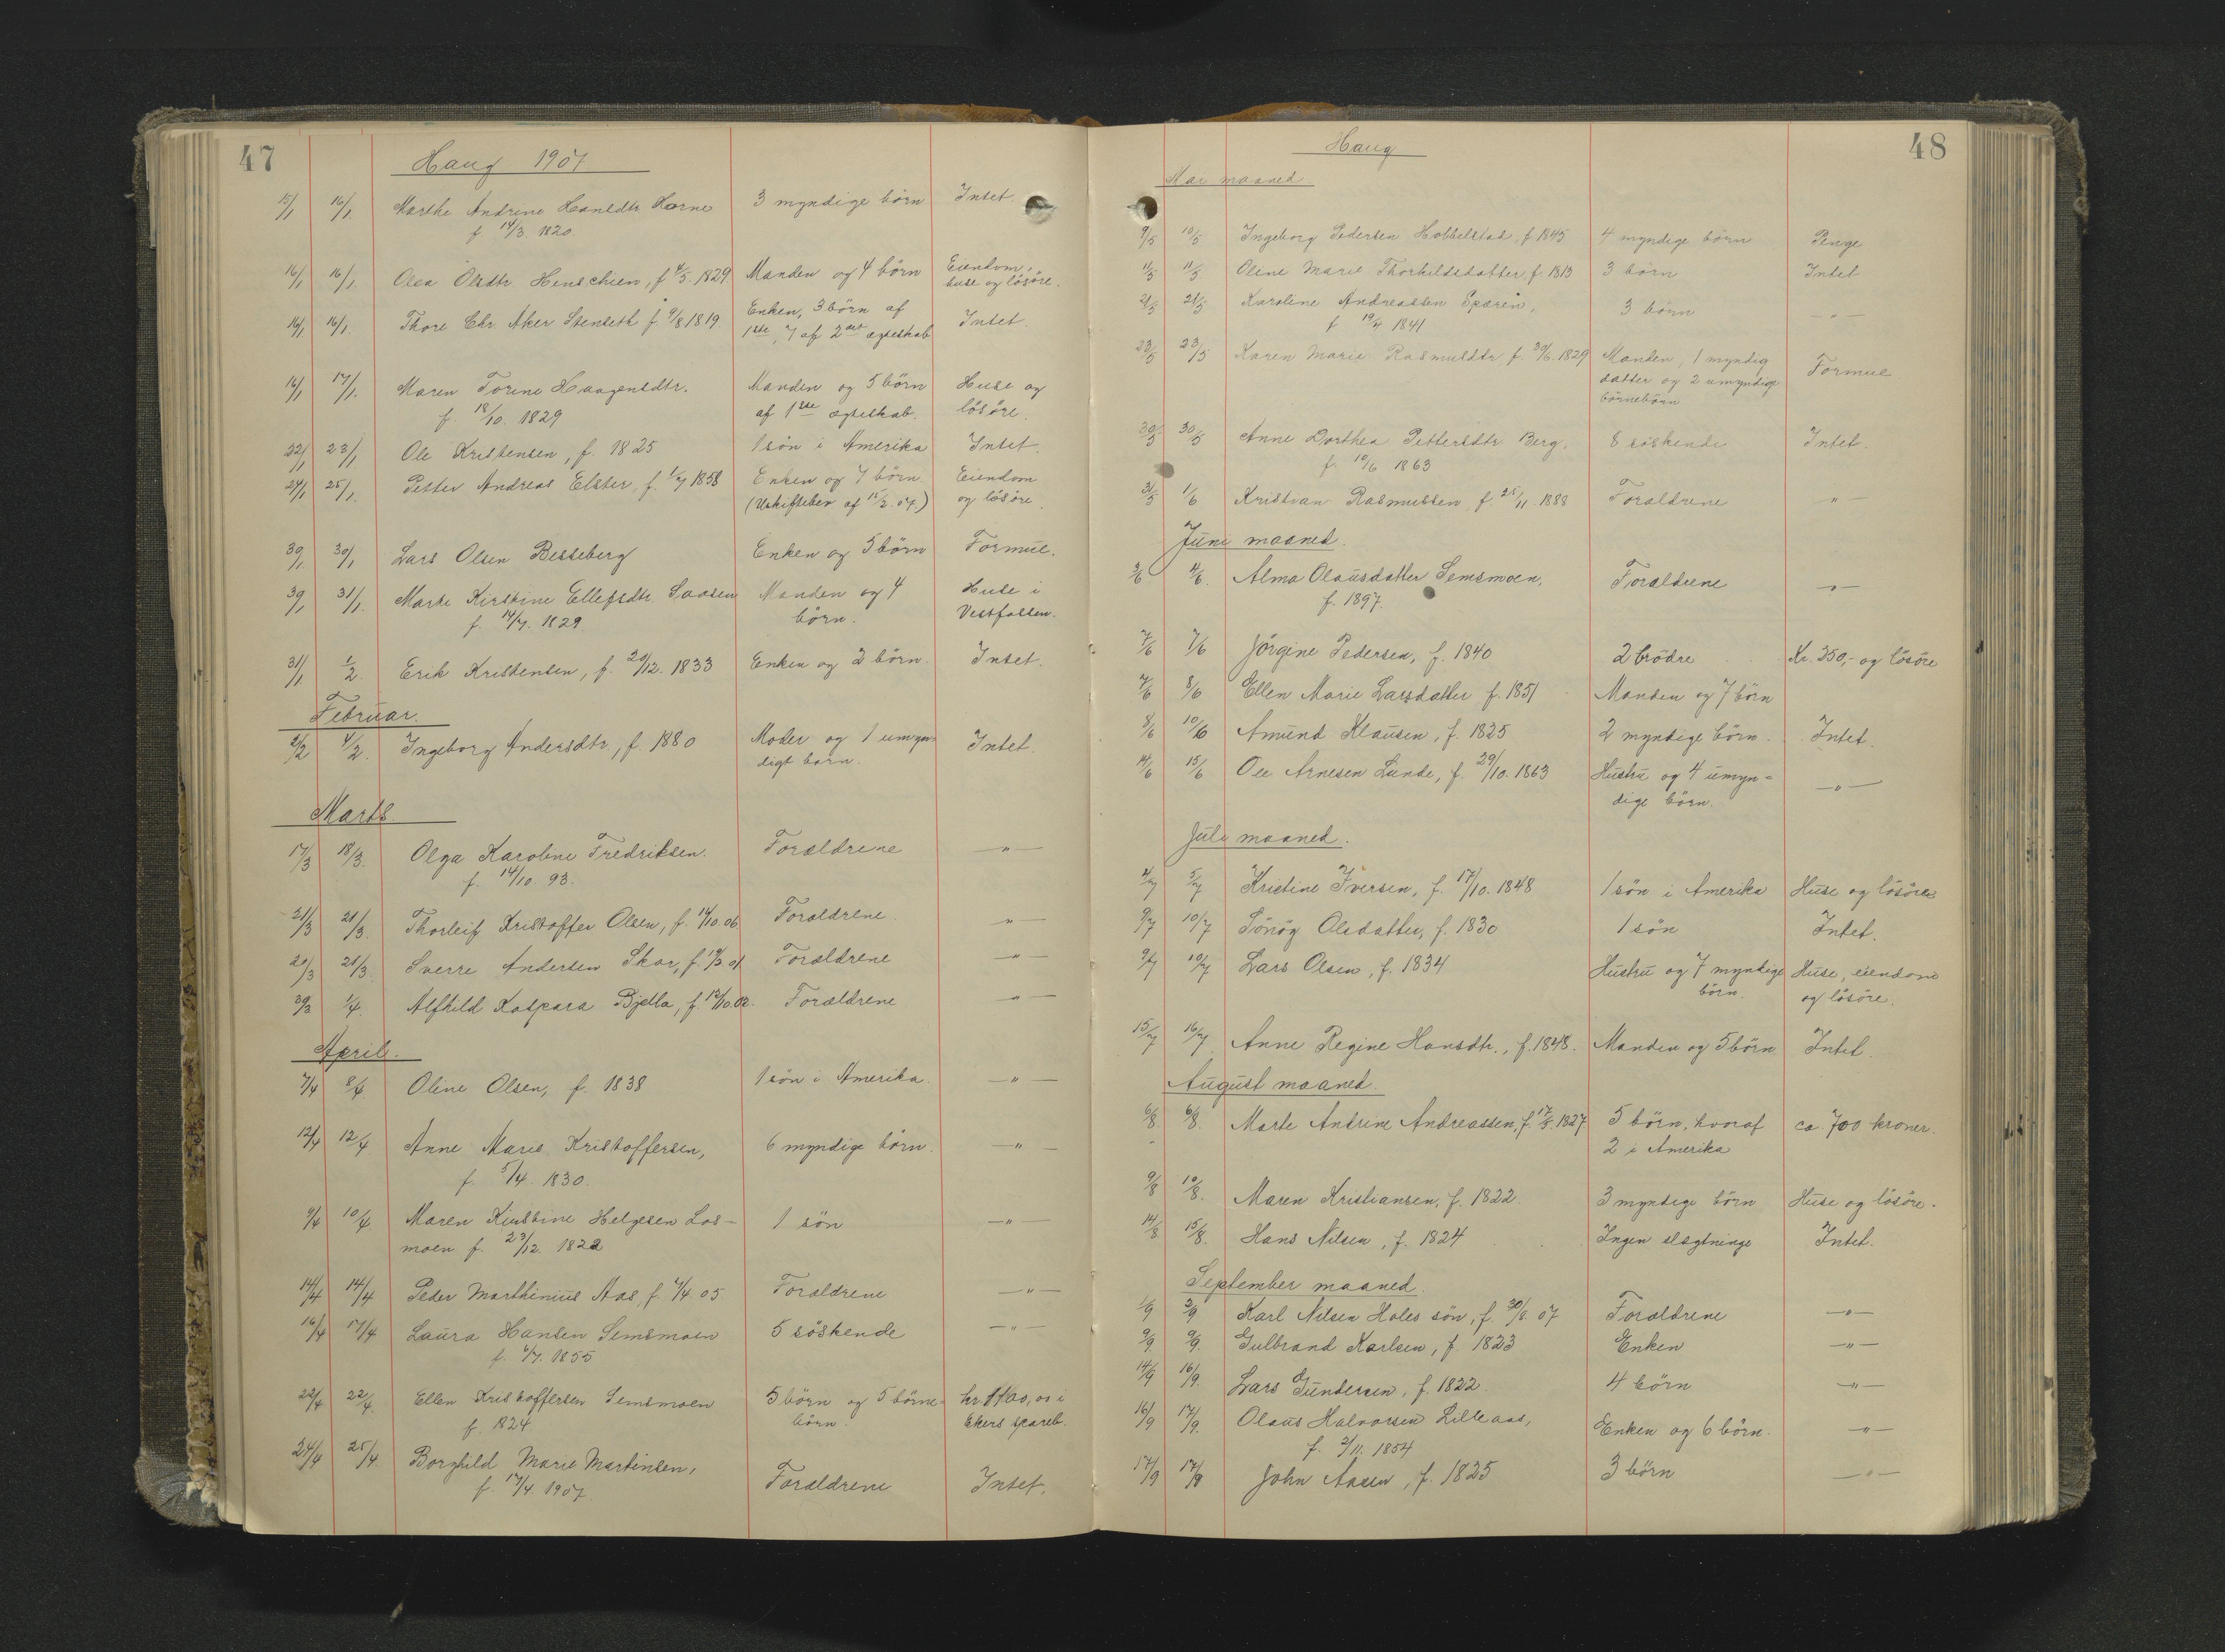 47
Haug 1907
15/1 16/1 Marthe Andrine Hansdtr Horne 3 myndige börn Intet.
f. 14/3. 1820.
16/1 16/1 Olea Olsdtr Henschien, f 4/5. 1829. Manden og 4 börn Eiendom,
huse og lösöre.
16/1 16/1. Thore Chr Aker Stenseth f. 9/8 1819 Enken, 3 börn af Intet.
1ste, 7 af 2det ægteskab
16/1 17/1. Maren Torine Haagensdtr. Manden og 5 börn Huse og
f. 18/10. 1829 af 1ste ægteskab. lösöre.
22/1 23/1 Ole Kristensen, f. 1825 1 sön i Amerika Intet.
24/1 25/1. Petter Andreas Elster, f. 1/7 1858 Enken og 7 börn Eiendom
(Uskiftebev af 11/2.07) og lösöre.
30/1 30/1 Lars Olsen Besseberg Enken og 5 börn Formue.
30/1 31/1. Marte Kirstine Ellefsdtr. Saasen Manden og 4 Huse i
f. 14/7. 1829 börn. Vestfossen.
31/1 1/2. Erik Kristensen, f. 20/12. 1833 Enken og 2 börn. Intet.
Februar.
2/2 4/2. Ingeborg Andersdtr, f. 1880 Moder og 1 umyn- Intet.
digt barn.
Marts.
17/3 18/3. Olga Karoline Fredriksen. Forældrene —"—
f. 14/10. 93.
21/3 21/3. Thorleif Kristoffer Olsen, f. 14/10.06 Forældrene. —"—
20/3 21/3. Sverre Andersen Skar, f. 19/3.01 Forældrene —"—
30/3 1/4. Alfhild Kaspara Bjella, f. 12/10.02. Forældrene —"—
April.
7/4 8/4. Oline Olsen, f. 1838 1 sön i Amerika. —"—
12/4 12/4 Anne Marie Kristoffersen, 6 myndige börn. —"—
f. 5/4. 1830.
9/4 10/4. Maren Kirstine Helgesen Los- 1 sön —"—
moen f. 23/12. 1822
14/4 14/4 Peder Marthinius Aas, f. 7/4 05 Forældrene —"—
16/4 17/4 Laura Hansen Semsmoen 5 söskende —"—
f. 6/7. 1855
22/4 22/4. Ellen Kristoffersen Semsmoen 5 börn og 5 börne- kr 1100,00 i
f. 1824 börn. Ekers spareb.
24/4 25/4. Borghild Marie Martinsen,
f. 17/4. 1907. Forældrene Intet.
48
Haug
Mai maaned
9/5 10/5 Ingeborg Pedersen Hobbelstad, f 1845 4 myndige börn Penge
11/5 11/5 Oline Marie Thorkildsdatter f. 1813 3 börn Intet
21/5 21/5 Karoline Andreassen Spæren, 3 börn —"—
f 19/4 1841
23/5 23/5 Karen Marie Rasmusdtr f. 30/6. 1829 Manden, 1 myndig Formue
datter og 2 umyndige
börnebörn
30/5 30/5 Anne Dorthea Pettersdtr Berg. 8 söskende Intet.
f. 10/6 1863
31/5 1/6 Kristian Rasmussen f. 25/11. 1888 Forældrene "—
Juni maaned.
3/6 4/6. Alma Olausdatter Semsmoen, Forældrene —"—
f. 1897.
7/6 7/6 Jörgine Pedersen, f. 1840 2 brödre Kr. 350,- og lösöre
7/6 8/6 Ellen Marie Larsdatter f. 1851 Manden og 7 börn
8/6 10/6 Amund Klausen, f. 1825 2 myndige börn. Intet.
14/6 15/6 Ole Arnesen Lunde, f. 29/10. 1863 Hustru og 4 umyn- —"—
dige börn.
Juli maaned.
4/7 5/7 Kristine Iversen, f. 17/10. 1848 1 sön i Amerika Huse og lösöre
9/7 10/7 Sönög Olsdatter, f. 1830 1 sön Intet.
9/7 10/7 Lars Olsen, f. 1834 Hustru og 7 myndige Huse, eiendom
börn. og lösöre.
15/7 16/7 Anne Regine Hansdtr., f. 1848. Manden og 5 börn Intet.
August maaned.
6/8 6/8. Marte Andrine Andreassen, f. 17/5. 1827 5 börn, hvoraf ca. 700 kroner.
2 i Amerika
9/8 10/8. Maren Kristiansen, f. 1822 3 myndige börn Huse og lösöre.
14/8 15/8. Hans Nilsen, f. 1824 Ingen slægtninge Intet.
September maaned.
1/9 2/9 Karl Nilsen Holes sön, f. 30/8. 07 Forældrene —"—
9/9. 9/9. Gulbrand Karlsen, f. 1823 Enken —"—
14/9 16/9. Lars Gundersen, f. 1822. 4 börn —"—
16/9 17/9. Olaus Halvorsen Lilleaas, Enken og 6 börn. —"—
f. 2/11. 1854
17/9 17/9 John Aasen, f. 1825 3 börn —"—